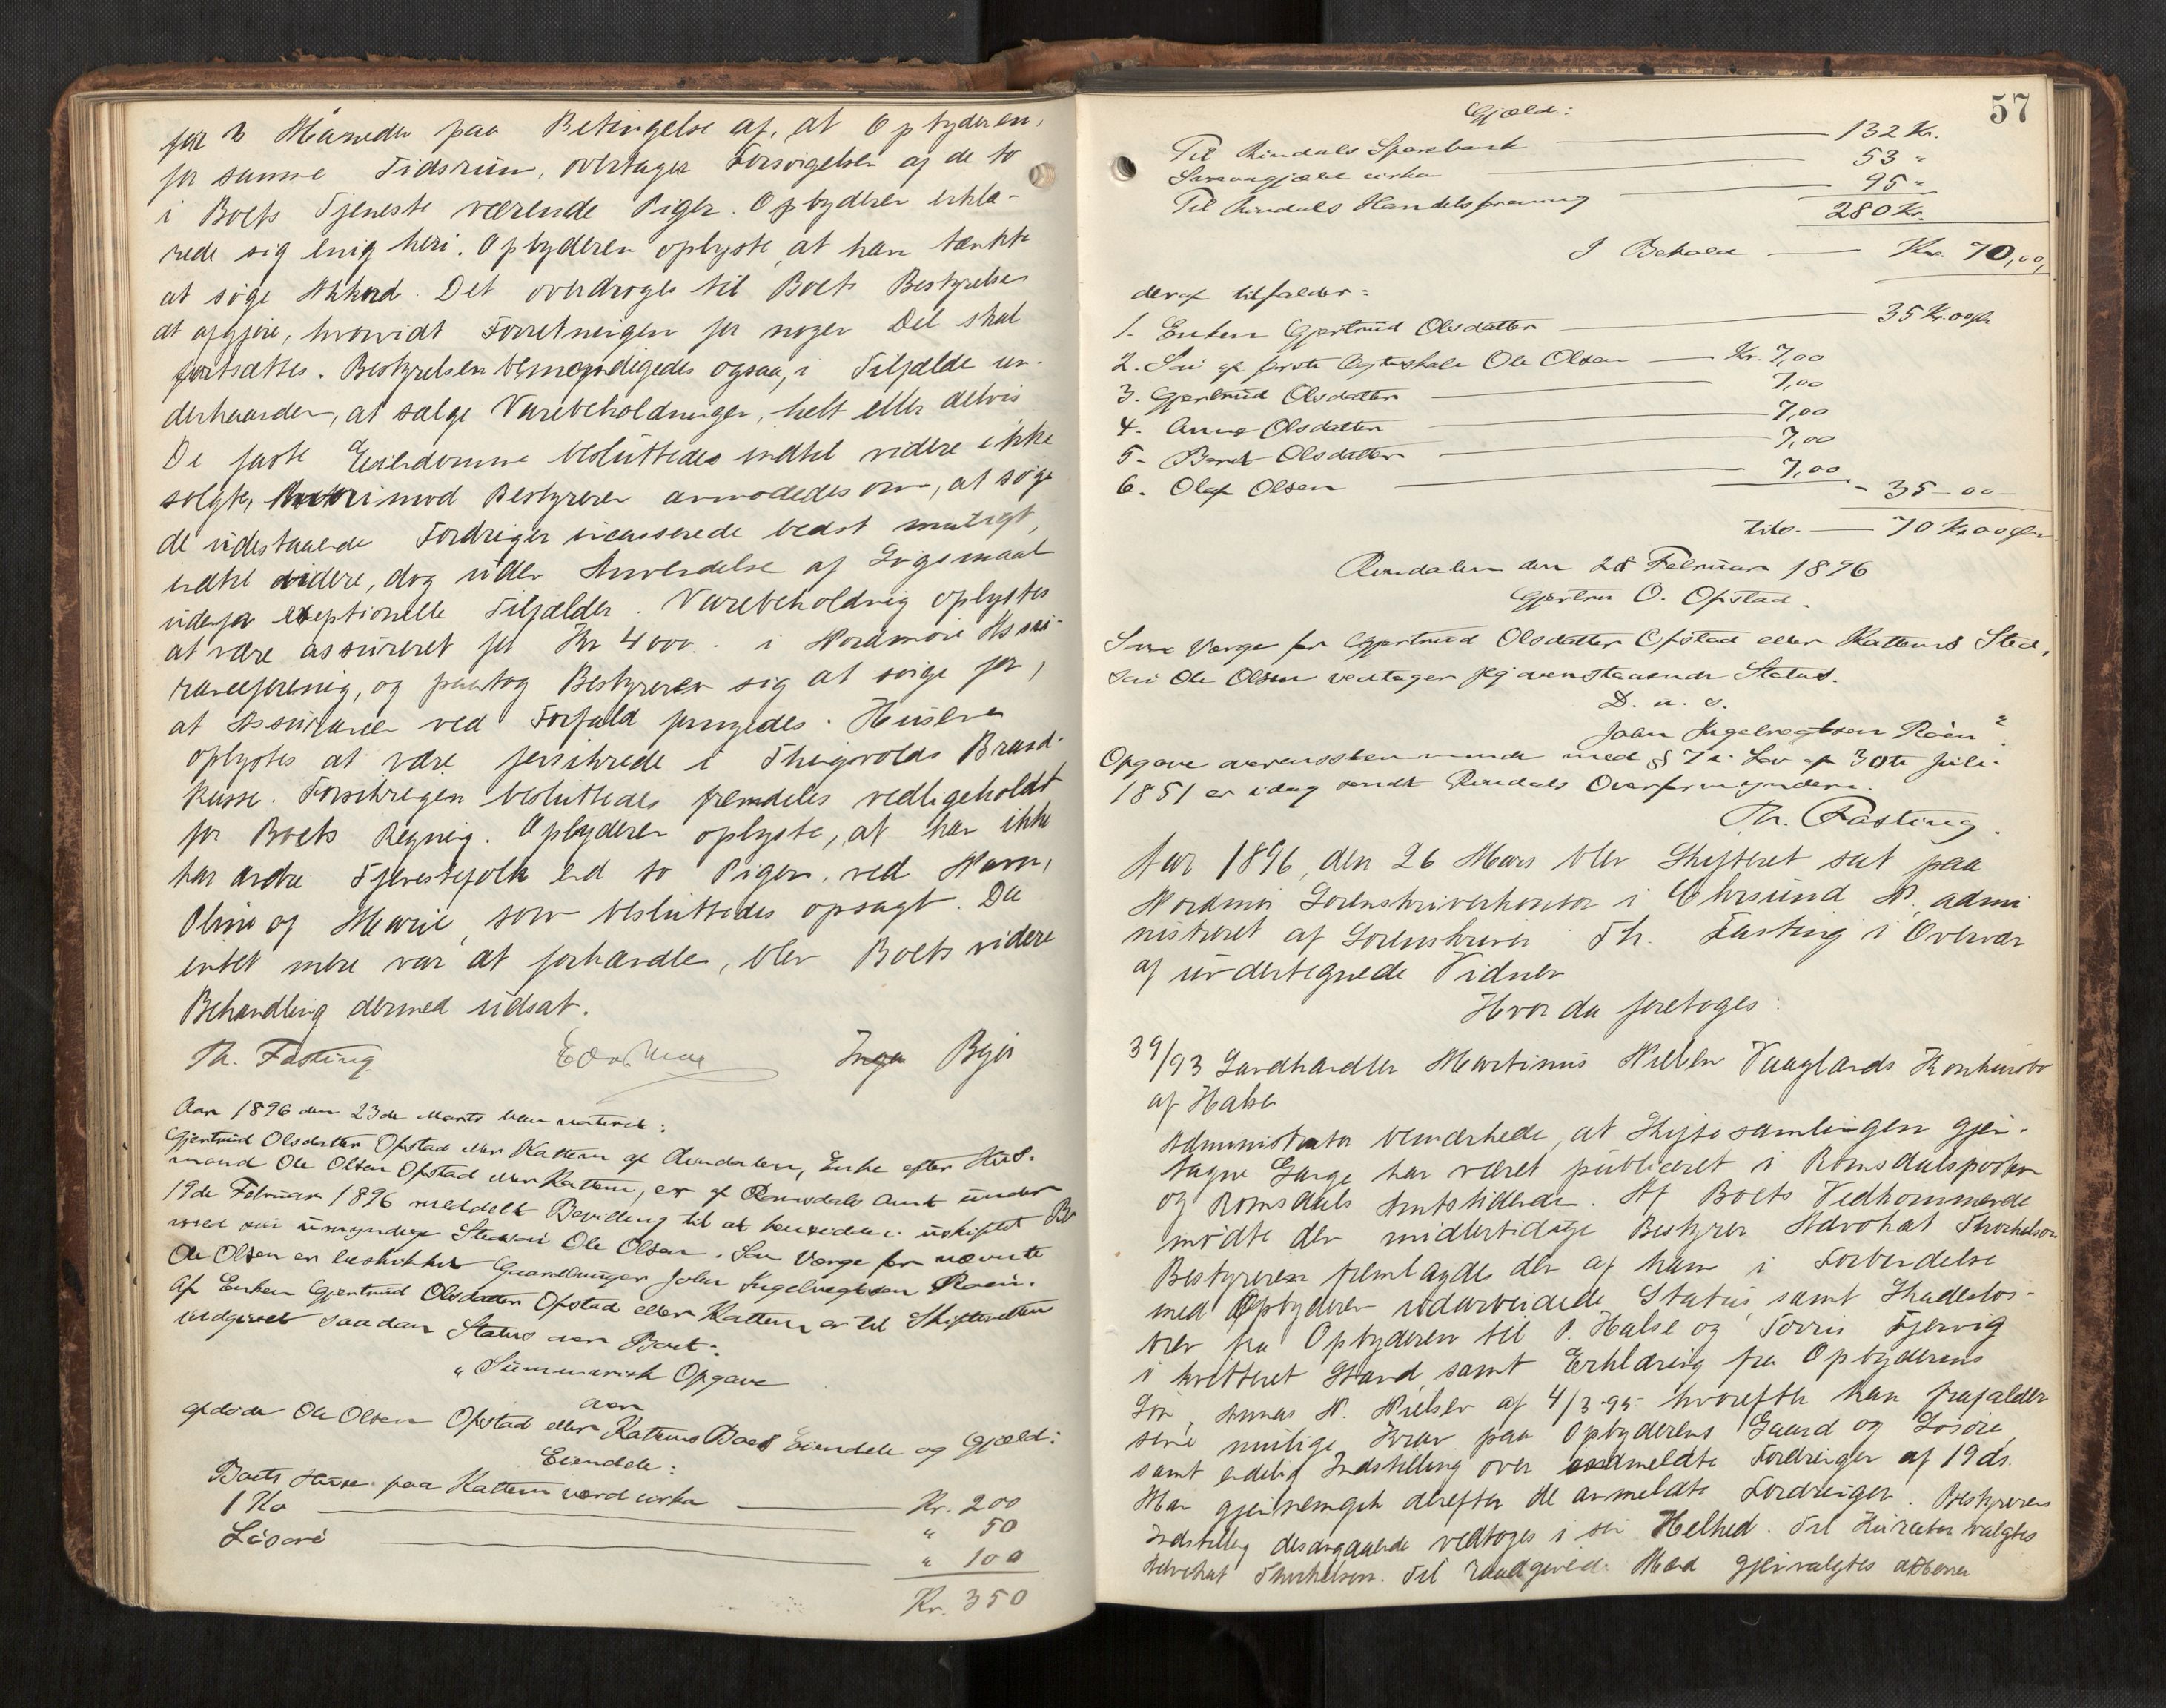 for 3 Maaneder paa Betingelse af, at Opbyderen,
for samme Tidsrum, overtager Forsørgelsen af de to
i Boets Tjeneste værende Piger. Opbyderen erklæ-
rede sig enig heri. Opbyderen oplyste, at han tænkte
at søge Akkord. Det overdroges til Boets Bestyrelse
at afgjøre, hvorvidt Forretningen for nogen Del skal
fortsættes. Bestyrelsen bemyndigedes ogsaa, i Tilfælde un-
derhaanden, at sælge Varebeholdningen, helt eller delvis
De faste Eiendomme besluttedes indtil videre ikke
solgte, hvorimod Bestyreren anmodedes om, at søge
de udestaaende Fordringer incasserede bedst muligt,
indtil videre, dog uden Anvendelse af Søgsmaal
udenfor exeptionelle Tilfælder. Varebeholdning oplystes
at være assureret for Kr 4000.- i Nordmøre Assu-
ranceforening, og paatog Bestyreren sig at sørge for,
at Assurancen ved Forfald fornyedes. Husene
oplystes at være forsikrede i Thingvolds Brand-
kasse. Forsikringen besluttedes fremdeles vedligeholdt
for Boets Regning. Opbyderen oplyste, at han ikke
har andre Tjenestefolk end to Piger, ved Navn,
Oline og Marie, som besluttedes opsagt. Da
intet mere var at forhandle, blev Boets videre
Behandling dermed udsat.
Th. Fasting Inga Bye
Aar 1896 den 23de Marts blev noteret:
Gjertrud Olsdatter Opstad eller Kattem af Rindalen, Enke efter Hus-
mand Ole Olsen Opstad eller Kattem, er af Romsdals Amt under
19de Februar 1896 meddelt Bevilling til at hensidde i uskiftet Bo
med sin umyndige Stedsøn Ole Olsen. Som Værge for nævnte
Ole Olsen er beskikket Gaardbruger John Ingebregtsen Røen.
Af Enken Gjertrud Olsdatter Opstad eller Kattem er til Skifteretten
indgivet saadan Status over Boet:
"Summarisk Opgave
over
afdøde Ole Olsen Opstad eller Kattems Boes Eiendele og Gjæld:
Eiendele:
Boets Huse paa Kattem værd cirka Kr. 200
1 Ko " 50
Løsøre " 100
Kr. 350
57
Gjæld:
Til Rindals Sparebank 132 Kr.
cirka 53 "
Til Rindals Handelsforening 95 "
280 Kr.
I Behold Kr. 70,00,
deraf tilfalder:
1. Enken Gjertrud Olsdatter 35 Kr. 00 Øre
2. Søn af første Ægteskab Ole Olsen Kr. 7,00
3. Gjertrud Olsdatter 7,00
4. Anne Olsdatter 7,00
5. Beret Olsdatter 7,00
6. Olaf Olsen 7,00 - 35-00-
tils. 70 Kr 00 Øre
Rindalen den 28 Februar 1896
Gjertru O. Opstad.
Som Værge for Gjertrud Olsdatter Opstad eller Kattems Sted,
søn Ole Olsen vedtager jeg ovenstaaende Status.
D. u. s.
John Ingebregtsen Røen"
Opgave overensstemmende med § 7 i Lov af 30te Juli
1851 er idag sendt Rindals Overformynderi.
Th. Fasting.
Aar 1896, den 26 Mars blev Skifteret sat paa
Nordmør Sorenskriverkontor i Chrsund N. admi
nistreret af Sorenskriver Th. Fasting i Overvær
af undertegnede Vidner
Hvor da foretoges:
39/93 Landhandler Martinus Nielsen Vaaglands Konkursbo
af Halse
Administrator bemærkede, at Skiftesamlingen gjen-
tagne Gange har været publiceret i Romsdalsposten
og Romsdals Amtstidende. Af Boets Vedkommende
mødte den midlertidige Bestyrer Advokat Thorkelson
Bestyreren fremlagde den af ham i Forbindelse
med Opbyderen udarbeidede Status, samt Skadesløs-
brev fra Opbyderen til P. Halse og Torris Fjervig
i kvitteret Stand samt Erklæring fra Opbyderens
Søn, Annas N. Nielsen af 4/3-95 hvorefter han frafalder
sine mulige Krav paa Opbyderens Gaard og Løsøre
samt endelig Indstilling over anmeldte Fordringer af 19 ds.
Man gjennemgik derefter de anmeldte Fordringer. Bestyrerens
Indstilling desangaaende vedtoges i sin Helhed. Til Kurator valgtes
Advokat Thorkelson. Til raadgivende Mænd gjenvalgtes